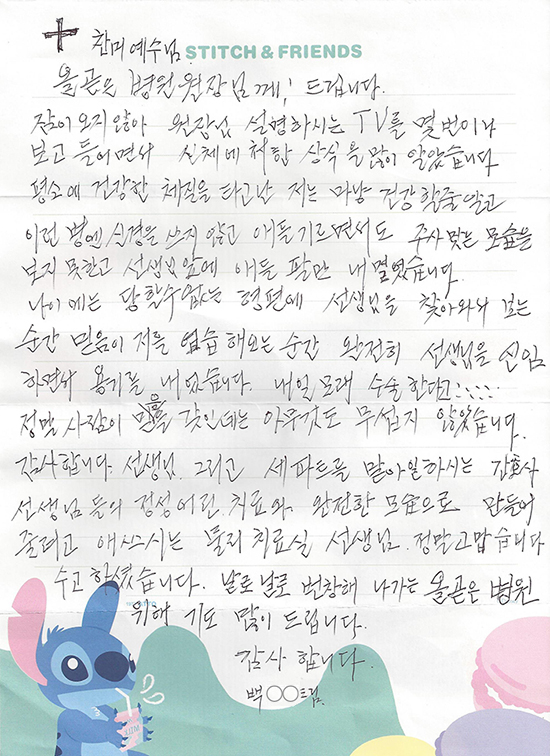 찬미예수님
STITCH & FRIENDS
올곧은 병원 원장님께! 드립니다.
잠이 오지 않아 원장님 설명하시는 TV를 몇 번이나
보고 들어면서 신체에 처함 상식을 많이 알았습니다
평소에 건강한 체질을 타고난 저는 마냥 건강할줄알고
이런 병엔 신경을 쓰지 않고 애들 기르면서도 주사 맞는 모습을
보지 못한고 선생님앞에 애들 팔만 내밀었습니다.
나이 에는 당할수없는 형편에 선생님을 찾아와서 보는
순간 믿음이 저를 엄습 해오는 순간 완전히 선생님을 신임
하면서 용기를 내었습니다. 내일 모래 수술 한다고
정말 사람이 믿음을 갖인데는 아무것도 무섭지 않았습니다.
감사합니다. 선생님. 그리고 세파트를 맡아일하시는 간호사
선생님 들의 정성어린 치료와 완전한 모습으로 만들어
줄려고 애쓰시는 물리 치료실 선생님. 정말고맙습니다
수고 하셨습니다. 날로 날로 번창해 나가는 올곧은 병원
위해 기도 많이 드립니다.
감사 합니다.
백○○드림.